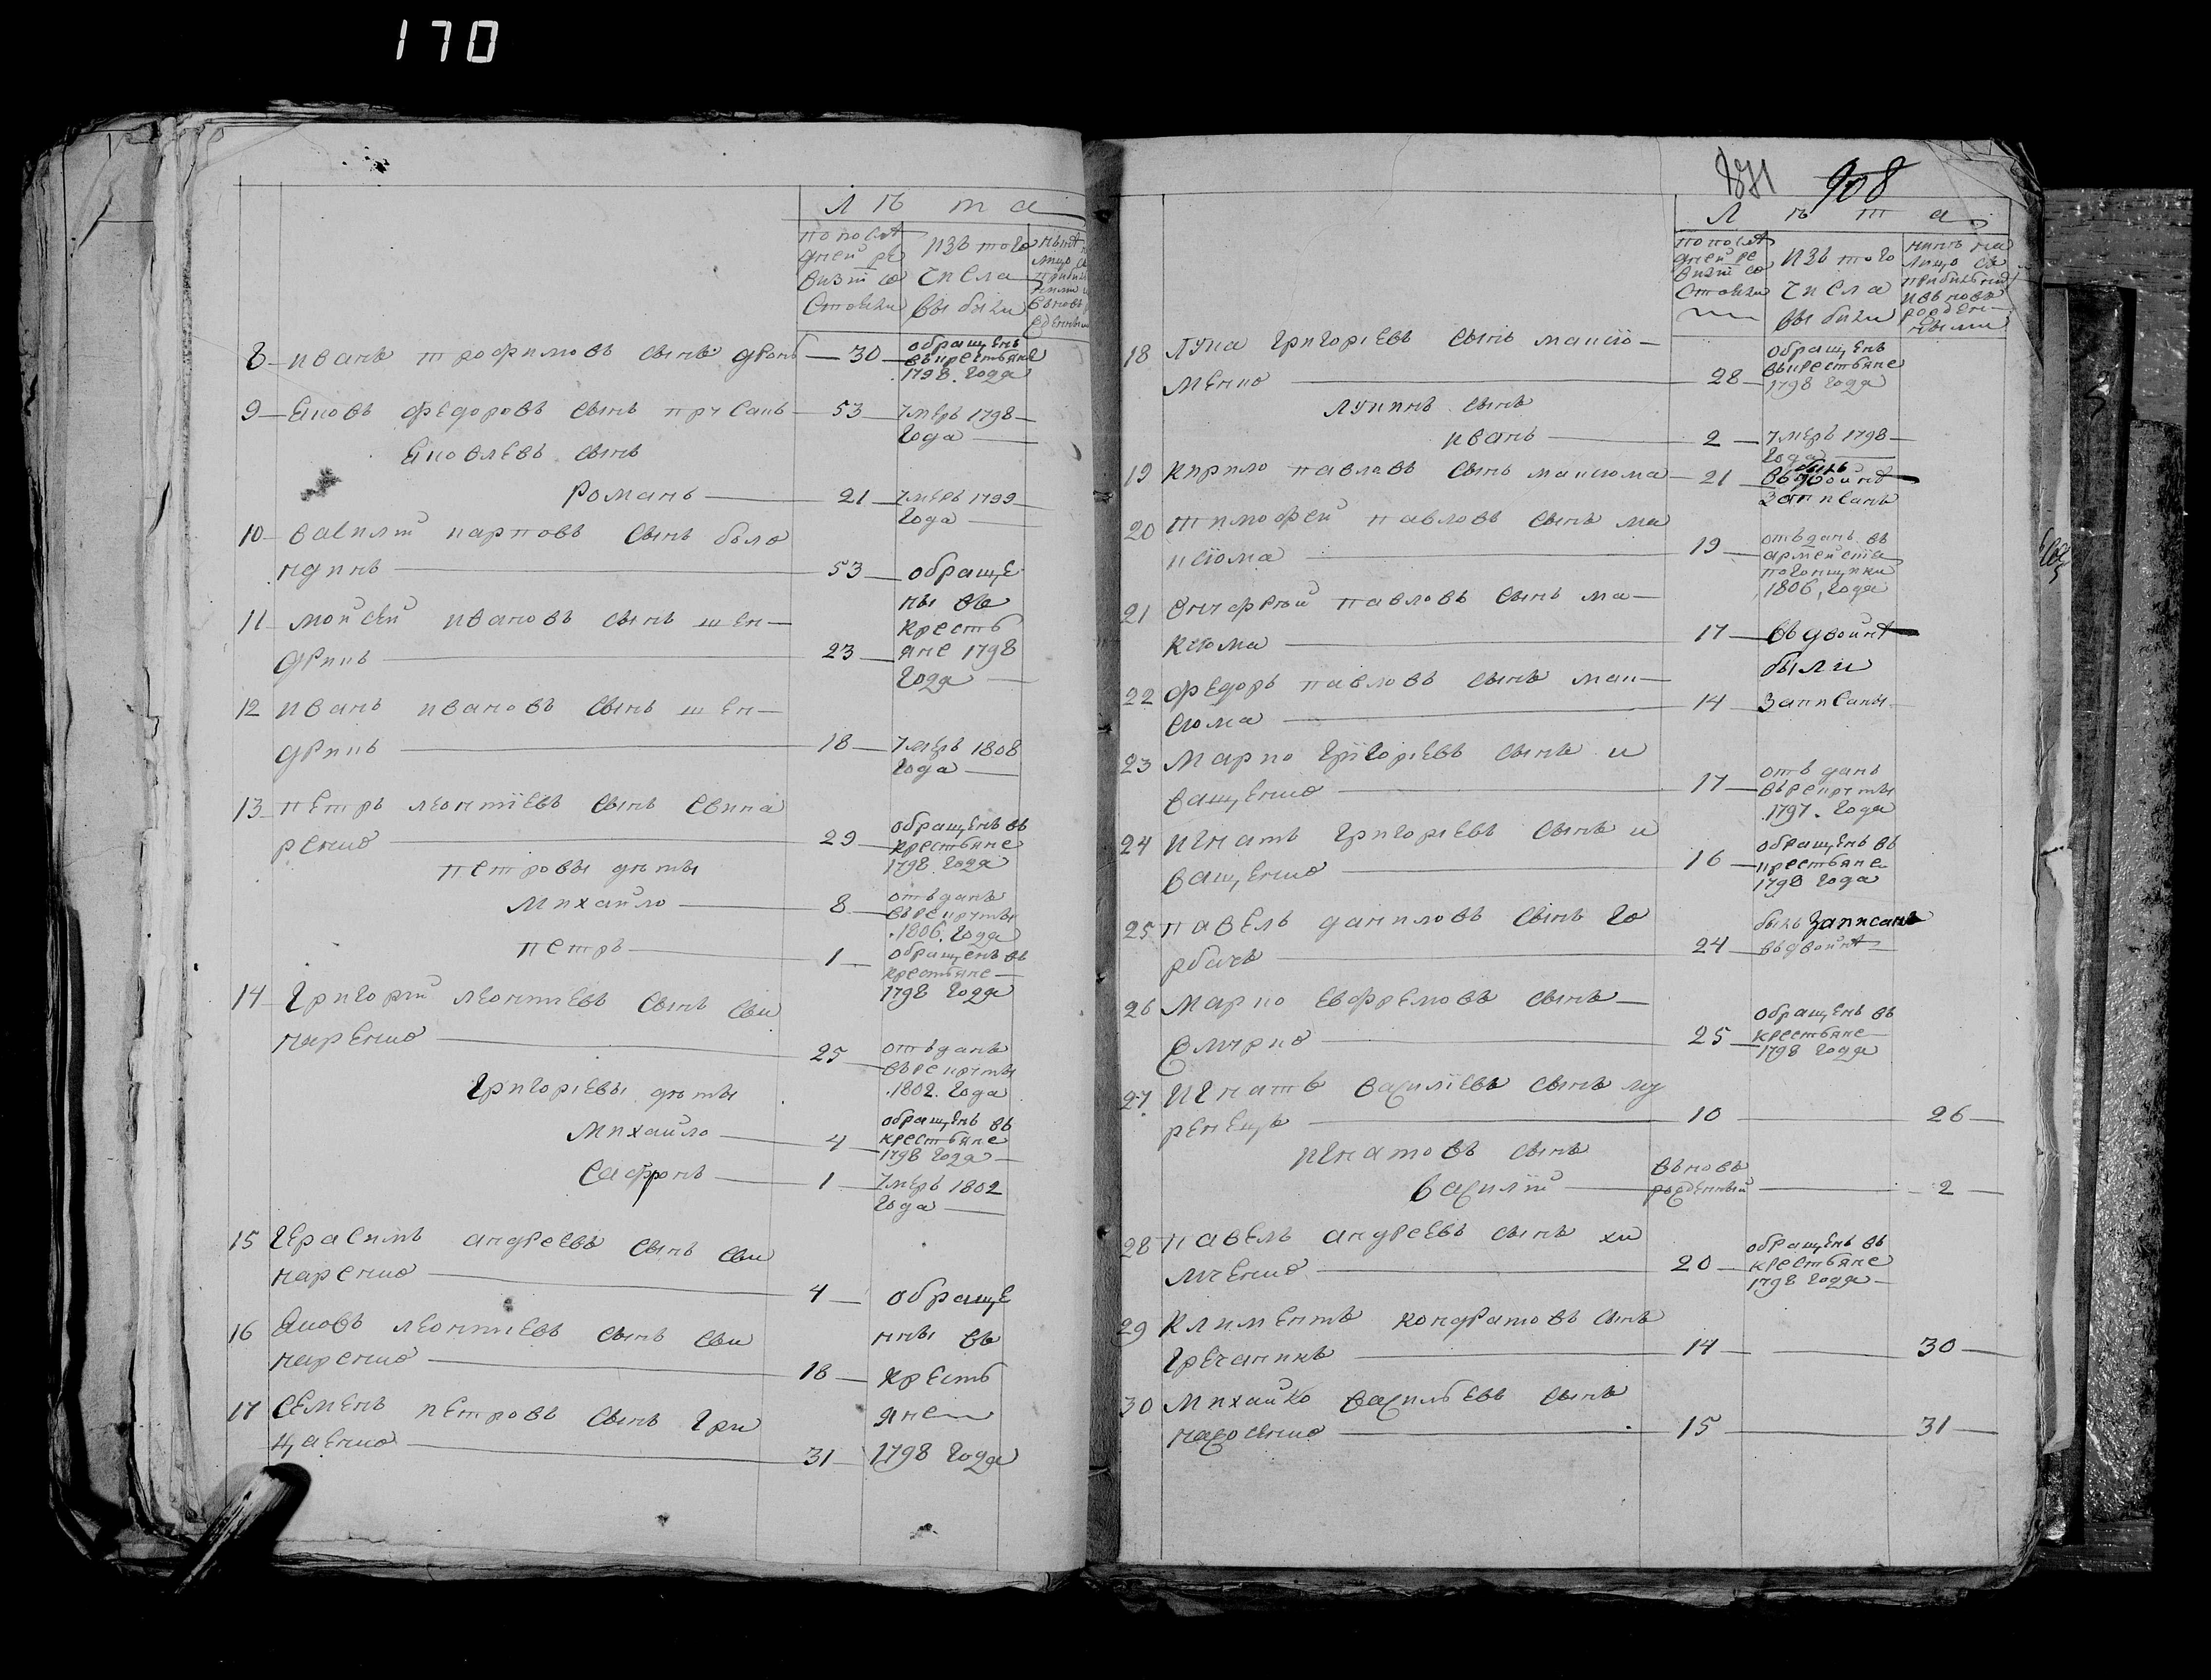 170
Лѣта
по послѣ
дней ре
визіи со
стояли
изъ того
числа
выбыли
8 иванъ трофимовъ сынъ
30
обращенъ
въ крестьяне
1798 года
9 Яковъ федоровъ сынъ
53
умеръ 1798
года
Яковлевъ сынъ
Романъ
21
умеръ 1799
года
10 василій карповъ сынъ
53
обраще
ны въ
кресть
яне 1798
года
11 мойсей ивановъ сынъ шен
дрикъ
23
12 иванъ ивановъ сынъ шен
дрикъ
18
умеръ 1808
года
13 петръ леонтіевъ сынъ свина
ренко
29
обращенъ въ
крестьяне
1798 года
петровы дѣти
михайло
8
отъданъ
въ рекруты
1806 года
петръ
1
обращенъ въ
крестьяне
1798 года
14 григорій леонтіевъ сынъ сви
наренко
25
отъданъ
въ рекруты
1802 года
григоріевы дѣти
михайло
4
обращенъ въ
крестьяне
1798 года
Сафронъ
1
умеръ 1802
года
15 герасимъ андреевъ сынъ сви
наренко
4
обраще
нны въ
кресть
яне
1798 года
16 Яковъ леонтіевъ сынъ сви
наренко
18
17 Семенъ петровъ сынъ гри
цаенко
31
908
Лѣта
по послѣ
дней ре
визіи со
стояли
изъ того
числа
выбыли
нынѣ на
лицо съ
прибылыми
и въновь
рожден
ными
18 Лука григоріевъ сынъ максю
менко
28
обращенъ
въ крестьяне
1798 года
лукинъ сынъ
иванъ
2
умеръ 1798
года
19 кирило павловъ сынъ максюма
21
былъ
въ двойнѣ
записанъ
20 тимофей павловъ сынъ ма
ксюма
19
отъданъ въ
армейскія
погонщики
1806 года
21 онуфрій павловъ сынъ ма
ксюма
17
въ двойнѣ
были
записаны
22 федоръ павловъ сынъ мак
сюма
14
23 Марко григоріевъ сынъ и
ващенко
17
отъданъ
въ рекруты
1797 года
24 игнатъ григоріевъ сынъ и
ващенко
16
обращенъ въ
крестьяне
1798 года
25 павелъ даниловъ сынъ го
рбачъ
24
былъ записанъ
въ двойнѣ
26 Марко евфремовъ сынъ
25
обращенъ въ
крестьяне
1798 года
27 игнатъ василіевъ сынъ лу
ренецъ
10
26
игнатовъ сынъ
василій
въновь
рожденный
2
28 павелъ андреевъ сынъ хи
мченко
20
обращенъ въ
крестьяне
1798 года
29 климентъ кондратовъ сынъ
гречаникъ
14
30
30 михайло васильевъ сынъ
15
31